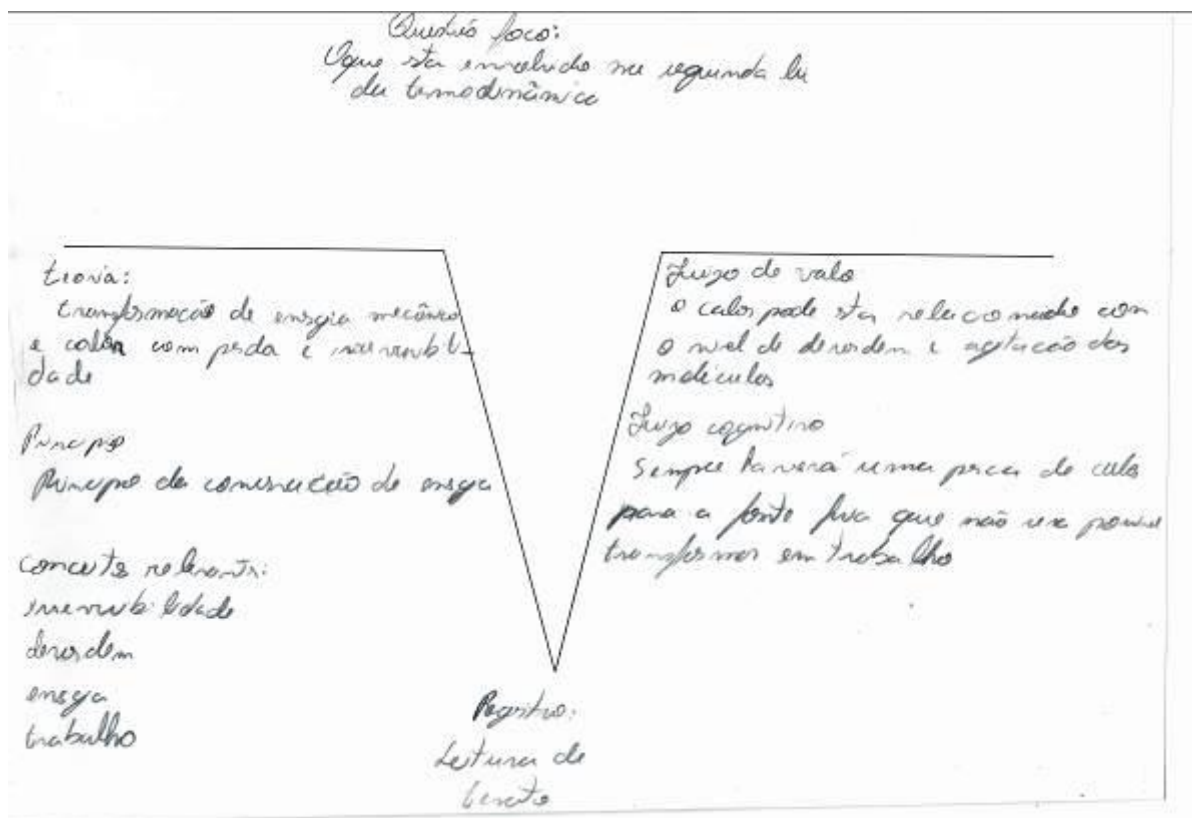 Questão foco:
O que sta envolvido na segunda lei
da termodinâmica
teoria:
transformação de energia mecânica
e calor com perda e irreversibili-
dade
Principio
Principio da conservação de energia
conceito relevante:
irreversibilidade
desordem
energia
trabalho
Registro:
Leitura de
texto
Juizo de valo
o calor pode star relacionado com
o nivel de desordem e agitação das
moléculas
Juizo cognitivo
Sempre haverá uma perca de calo
para a fonte fria que não sera possivel
transformar em trabalho